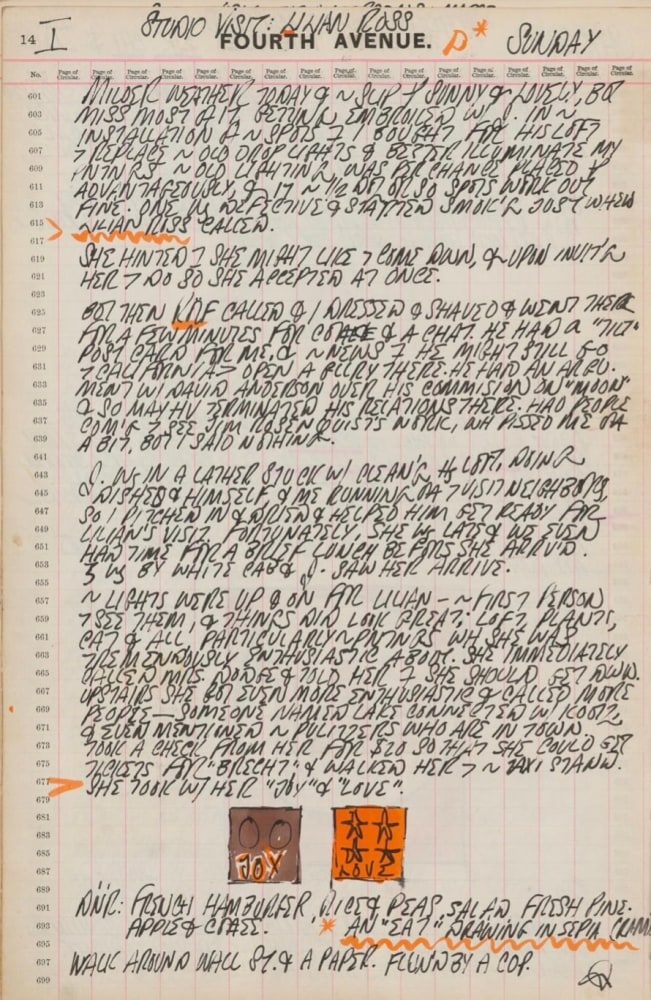 14 I STUDIO VISIT: LILIAN ROSS
FOURTH AVENUE. D* SUNDAY
No. Page of Circular. Page of Circular. Page of Circular. Page of Circular. Page of Circular. Page of Circular. Page of Circular. Page of Circular. Page of Circular. Page of Circular. Page of Circular. Page of Circular. Page of Circular. Page of Circular. Page of Circular. Page of Circular. Page of Circular.
601 MILDER WEATHER TODAY & ~ SUNNY & LOVELY, BUT
603 MISS MOST OF IT GETTING EMBROILED W/ IN ~
605 INSTALLATION OF ~ SPOTS I BOUGHT FOR HIS LOFT
607 REPLACE ~ OLD DROP LIGHTS & BETTER ILLUMINATE MY
609 PNTNGS. ~ OLD LIGHTING WAS PERCHANCE PLACED
611 ADVANTAGEOUSLY, & ~ 1/2 DOZ OR SO SPOTS WORK OUT
613 FINE. ONE IS DEFECTIVE & STARTED SMOK'G JUST WHEN
615 LILIAN ROSS CALLED.
617
619 SHE HINTED SHE MIGHT LIKE COME DOWN, & UPON INVIT'G
621 HER DO SO SHE ACCEPTED AT ONCE.
623
625 BUT THEN CALLED & I DRESSED & SHAVED & WENT THERE
627 FOR A FEW MINUTES FOR COFFEE & A CHAT. HE HAD A
629 POST CARD FOR ME, & ~ NEWS HE MIGHT STILL GO
631 CALIFORNIA OPEN A GLLRY THERE. HE HAD AN ARGU-
633 MENT W/ DAVID ANDERSON OVER HIS COMMISION ON "MOON"
635 & SO MAY HV TERMINATED HIS RELATIONS THERE. HAD PEOPLE
637 COM'G SEE JIM ROSENQUIST'S WORK, WH PISSED ME OFF
639 A BIT, BUT I SAID NOTHING.
641
643 J. WS IN A LATHER STUCK W/ CLEAN'G LOFT, DOING
645 DISHES & HIMSELF & ME RUNNING OFF VISIT NEIGHBORS,
647 SO I PITCHED IN & DRIED & HELPED HIM GET READY FOR
649 LILIAN'S VISIT. FORTUNATELY, SHE WS LATE & WE EVEN
651 HAD TIME FOR A BRIEF LUNCH BEFORE SHE ARRIVD.
653 WS BY WHITE CAB & J. SAW HER ARRIVE.
655
657 ~ LIGHTS WERE UP & ON FOR LILIAN — ~ FIRST PERSON
659 SEE THEM, & THINGS DID LOOK GREAT: LOFT, PLANTS,
661 CAT & ALL, PARTICULARLY ~ PNTNGS WH SHE WAS
663 TREMENDOUSLY ENTHUSIASTIC ABOUT. SHE IMMEDIATELY
665 CALLED MRS. DODGE & TOLD HER SHE SHOULD GET DOWN.
667 UPSTAIRS SHE GOT EVEN MORE ENTHUSIASTIC & CALLED MORE
669 PEOPLE — SOMEONE NAMED LAKE CONNECTED W/ KOOTZ,
671 & EVEN MENTIONED ~ PULITZERS WHO ARE IN TOWN.
673 TOOK A CHECK FROM HER FOR $20 SO THAT SHE COULD GET
675 TICKETS FOR "BRECHT" & WALKED HER ~ TAXI STAND.
677 SHE TOOK W/ HER "JOY" & "LOVE".
679
681
683
685 JOY LOVE
687
689
691 DNR: FRENCH HAMBURGER, RICE & PEAS, SALAD FRESH PINE-
693 APPLE & COFFEE. * AN "EAT" DRAWING IN SEPIA
695
697 WALK AROUND WALL ST. & A PAPER. BY A COP.
699